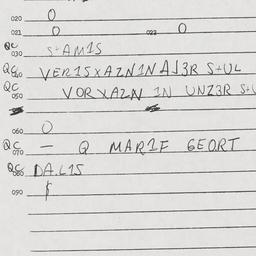 020 0
021 0 022 0
QC
030 S+AM1S
QC 040 VER15XAZN1NAJ3R S+UL
QC
050 VORXAZN IN UNZ3R S+U
060 0
QC
070 — Q MAR1F GEORT
QC
080 DA.L1S
090